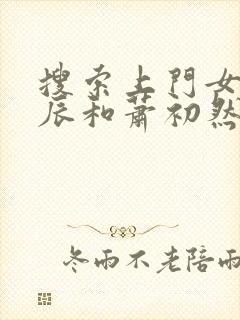 搜索上門女
辰和蕭初然
冬雨不老陪雨